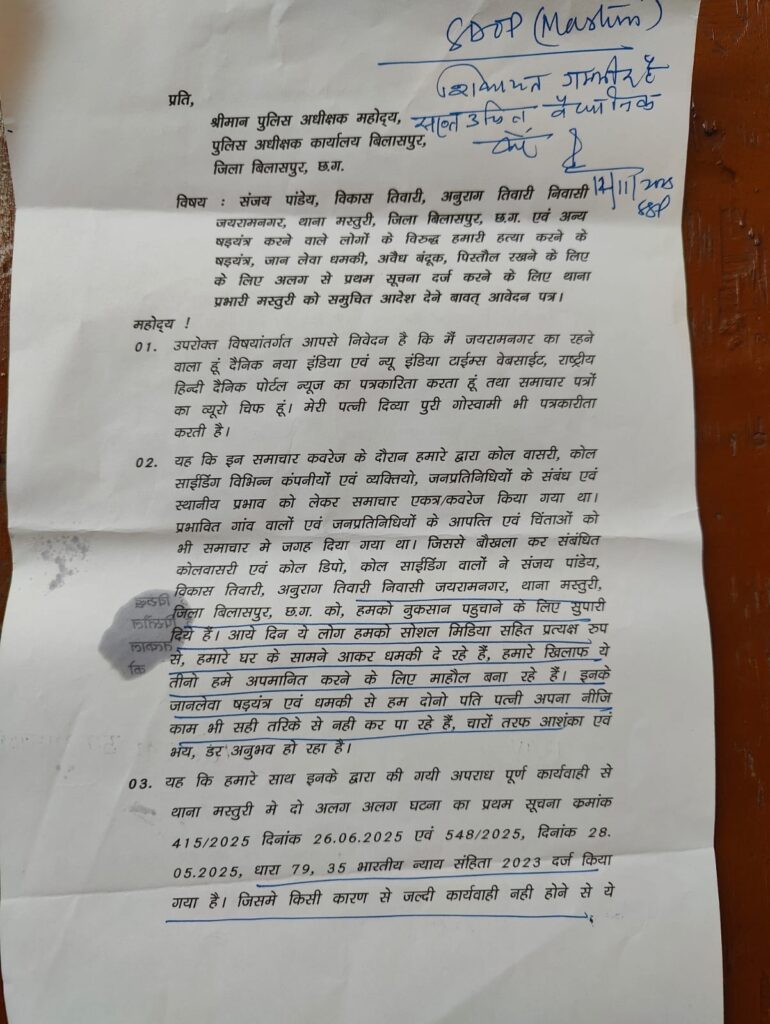 SDOP (Masturi)
शिकायत गम्भीर है
उचित वैधानिक
करें
12/11/2025
SSP
प्रति,
श्रीमान पुलिस अधीक्षक महोद्य,
पुलिस अधीक्षक कार्यालय बिलासपुर,
जिला बिलासपुर, छ.ग.
विषय : संजय पांडेय, विकास तिवारी, अनुराग तिवारी निवासी
जयरामनगर, थाना मस्तुरी, जिला बिलासपुर, छ.ग. एवं अन्य
षड्यंत्र करने वाले लोगों के विरुद्ध हमारी हत्या करने के
षड्यंत्र, जान लेवा धमकी, अवैध बंदूक, पिस्तौल रखने के लिए
के लिए अलग से प्रथम सूचना दर्ज करने के लिए थाना
प्रभारी मस्तुरी को समुचित आदेश देने बावत् आवेदन पत्र।
महोद्य !
01. उपरोक्त विषयांतर्गत आपसे निवेदन है कि मैं जयरामनगर का रहने
वाला हूं दैनिक नया इंडिया एवं न्यू इंडिया टाईम्स वेबसाईट, राष्ट्रीय
हिन्दी दैनिक पोर्टल न्यूज का पत्रकारिता करता हूं तथा समाचार पत्रों
का व्यूरो चिफ हूं। मेरी पत्नी दिव्या पुरी गोस्वामी भी पत्रकारीता
करती है।
02. यह कि इन समाचार कवरेज के दौरान हमारे द्वारा कोल वासरी, कोल
साईडिंग विभिन्न कंपनीयों एवं व्यक्तियो, जनप्रतिनिधियों के संबंध एवं
स्थानीय प्रभाव को लेकर समाचार एकत्र/कवरेज किया गया था।
प्रभावित गांव वालों एवं जनप्रतिनिधियों के आपत्ति एवं चिंताओं को
भी समाचार मे जगह दिया गया था। जिससे बौखला कर संबंधित
कोलवासरी एवं कोल डिपो, कोल साईडिंग वालों ने संजय पांडेय,
विकास तिवारी, अनुराग तिवारी निवासी जयरामनगर, थाना मस्तुरी,
जिला बिलासपुर, छ.ग. को, हमको नुकसान पहुचाने के लिए सुपारी
दिये हैं। आये दिन ये लोग हमको सोशल मिडिया सहित प्रत्यक्ष रुप
से, हमारे घर के सामने आकर धमकी दे रहे हैं, हमारे खिलाफ ये
तीनो हमे अपमानित करने के लिए माहौल बना रहे हैं। इनके
जानलेवा षड्यंत्र एवं धमकी से हम दोनो पति पत्नी अपना नीजि
काम भी सही तरिके से नही कर पा रहे हैं, चारों तरफ आशंका एवं
भय, डर अनुभव हो रहा है।
03. यह कि हमारे साथ इनके द्वारा की गयी अपराध पूर्ण कार्यवाही से
थाना मस्तुरी मे दो अलग अलग घटना का प्रथम सूचना कमांक
415/2025 दिनांक 26.06.2025 एवं 548/2025, दिनांक 28.
05.2025, धारा 79, 35 भारतीय न्याय संहिता 2023 दर्ज किया
गया है। जिसमे किसी कारण से जल्दी कार्यवाही नही होने से ये